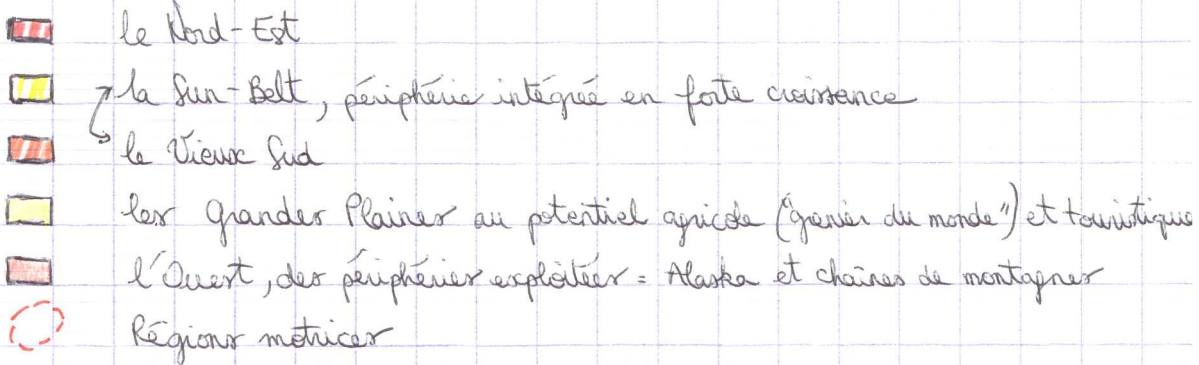 le Nord-Est
la Sun-Belt, périphérie intégrée en forte croissance
le Vieux Sud
les Grandes Plaines au potentiel agricole ("grenier du monde") et touristique
l'Ouest, des périphéries exploitées = Alaska et chaînes de montagnes
Régions motrices